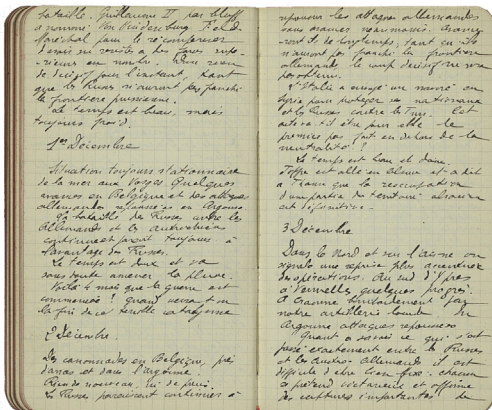 bataille. Guillaume II par bluff
a nommé Von Hindenburg Feld
Maréchal pour le récompenser
d'avoir su résister à des forces supé-
rieures en nombre. Rien
de décisif pour l'instant, tant
que les Russes n'auront pas franchi
la frontière prussienne.
Le temps est beau, mais
toujours froid.
1er Décembre
Situation toujours stationnaire
de la mer aux Vosges. Quelques
avances en Belgique et des attaques
allemandes en Argonne
La bataille des Russes contre les
Allemands et les Autrichiens
continue et paraît toujours à
l'avantage des Russes.
Le temps est doux et va
sans doute amener la pluie.
Voilà 4 mois que la guerre est
commencée ! quand verra-t-on
la fin de ce terrible
2 Décembre
Des canonnades en Belgique, près
d'Arras et dans l'Argonne.
Rien de nouveau, ni de
Les Russes paraissent continuer à
repousser les attaques allemandes
sans avances
ront-ils longtemps, tant qu'ils
n'auront pas franchi la frontière
allemande le coup décisif ne sera
pas obtenu.
L'Italie a envoyé un navire en
Syrie pour protéger ses nationaux
et les Russes contre les Turcs. Cet
acte va-t-il être pour elle le
premier pas fait en dehors de la
neutralité ?
Le temps est beau et doux.
Joffre est allé en Alsace et a dit
à Thann que la réoccupation
d'une partie du territoire alsacien
est définitive.
3 Décembre
Dans le Nord et sur l'Aisne on
signale une reprise plus accentuée
des opérations. Au sud d'Ypres
à Vermelles quelques progrès.
A Craonne bombardement par
notre artillerie lourde. En
Argonne attaques repoussées
Quant à savoir ce qui s'est
passé exactement entre les Russes
et les Austro-Allemands il est
difficile d'être bien fixé. Chacun
se prétend victorieux et affirme
des captures importantes de